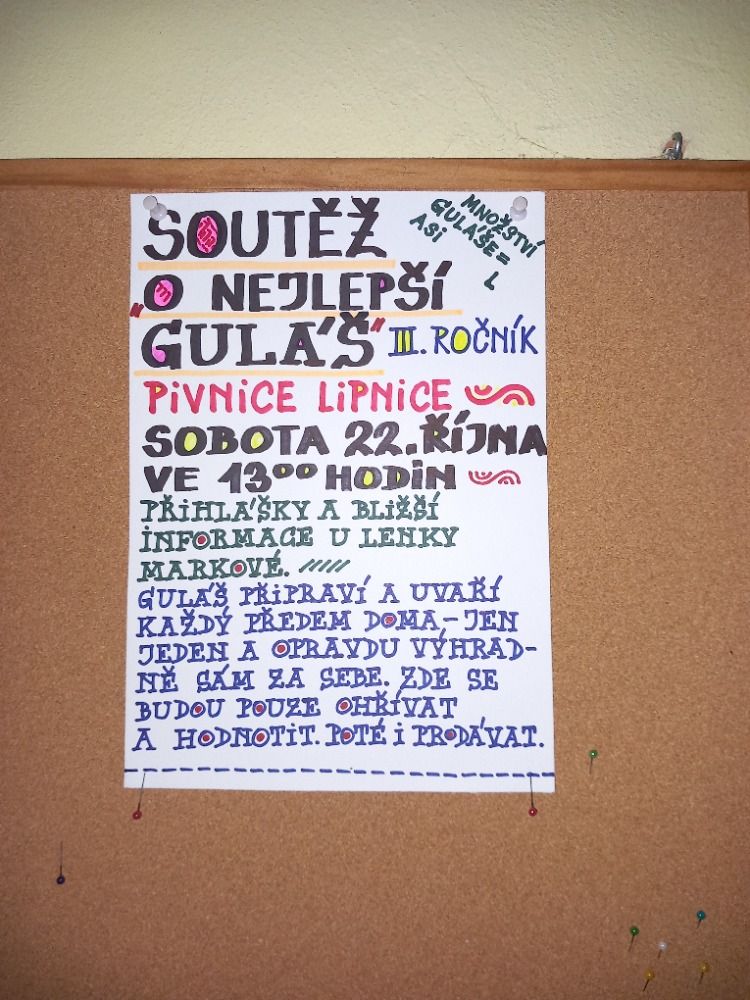 SOUTĚŽ
MNOŽSTVÍ
GULÁŠE =
ASi L
„O NEJLEPŠÍ
GULÁŠ" III. ROČNÍK
PiVNiCE LiPNiCE
SOBOTA 22. ŘÍJNA
VE 13⁰⁰ HODiN
PŘiHLÁŠKY A BLiŽŠÍ
iNFORMACE U LENKY
MARKOVÉ.
GULÁŠ PŘiPRAVÍ A UVAŘÍ
KAŽDÝ PŘEDEM DOMA – JEN
JEDEN A OPRAVDU VÝHRAD-
NĚ SÁM ZA SEBE. ZDE SE
BUDOU POUZE OHŘÍVAT
A HODNOTiT. POTÉ i PRODÁVAT.